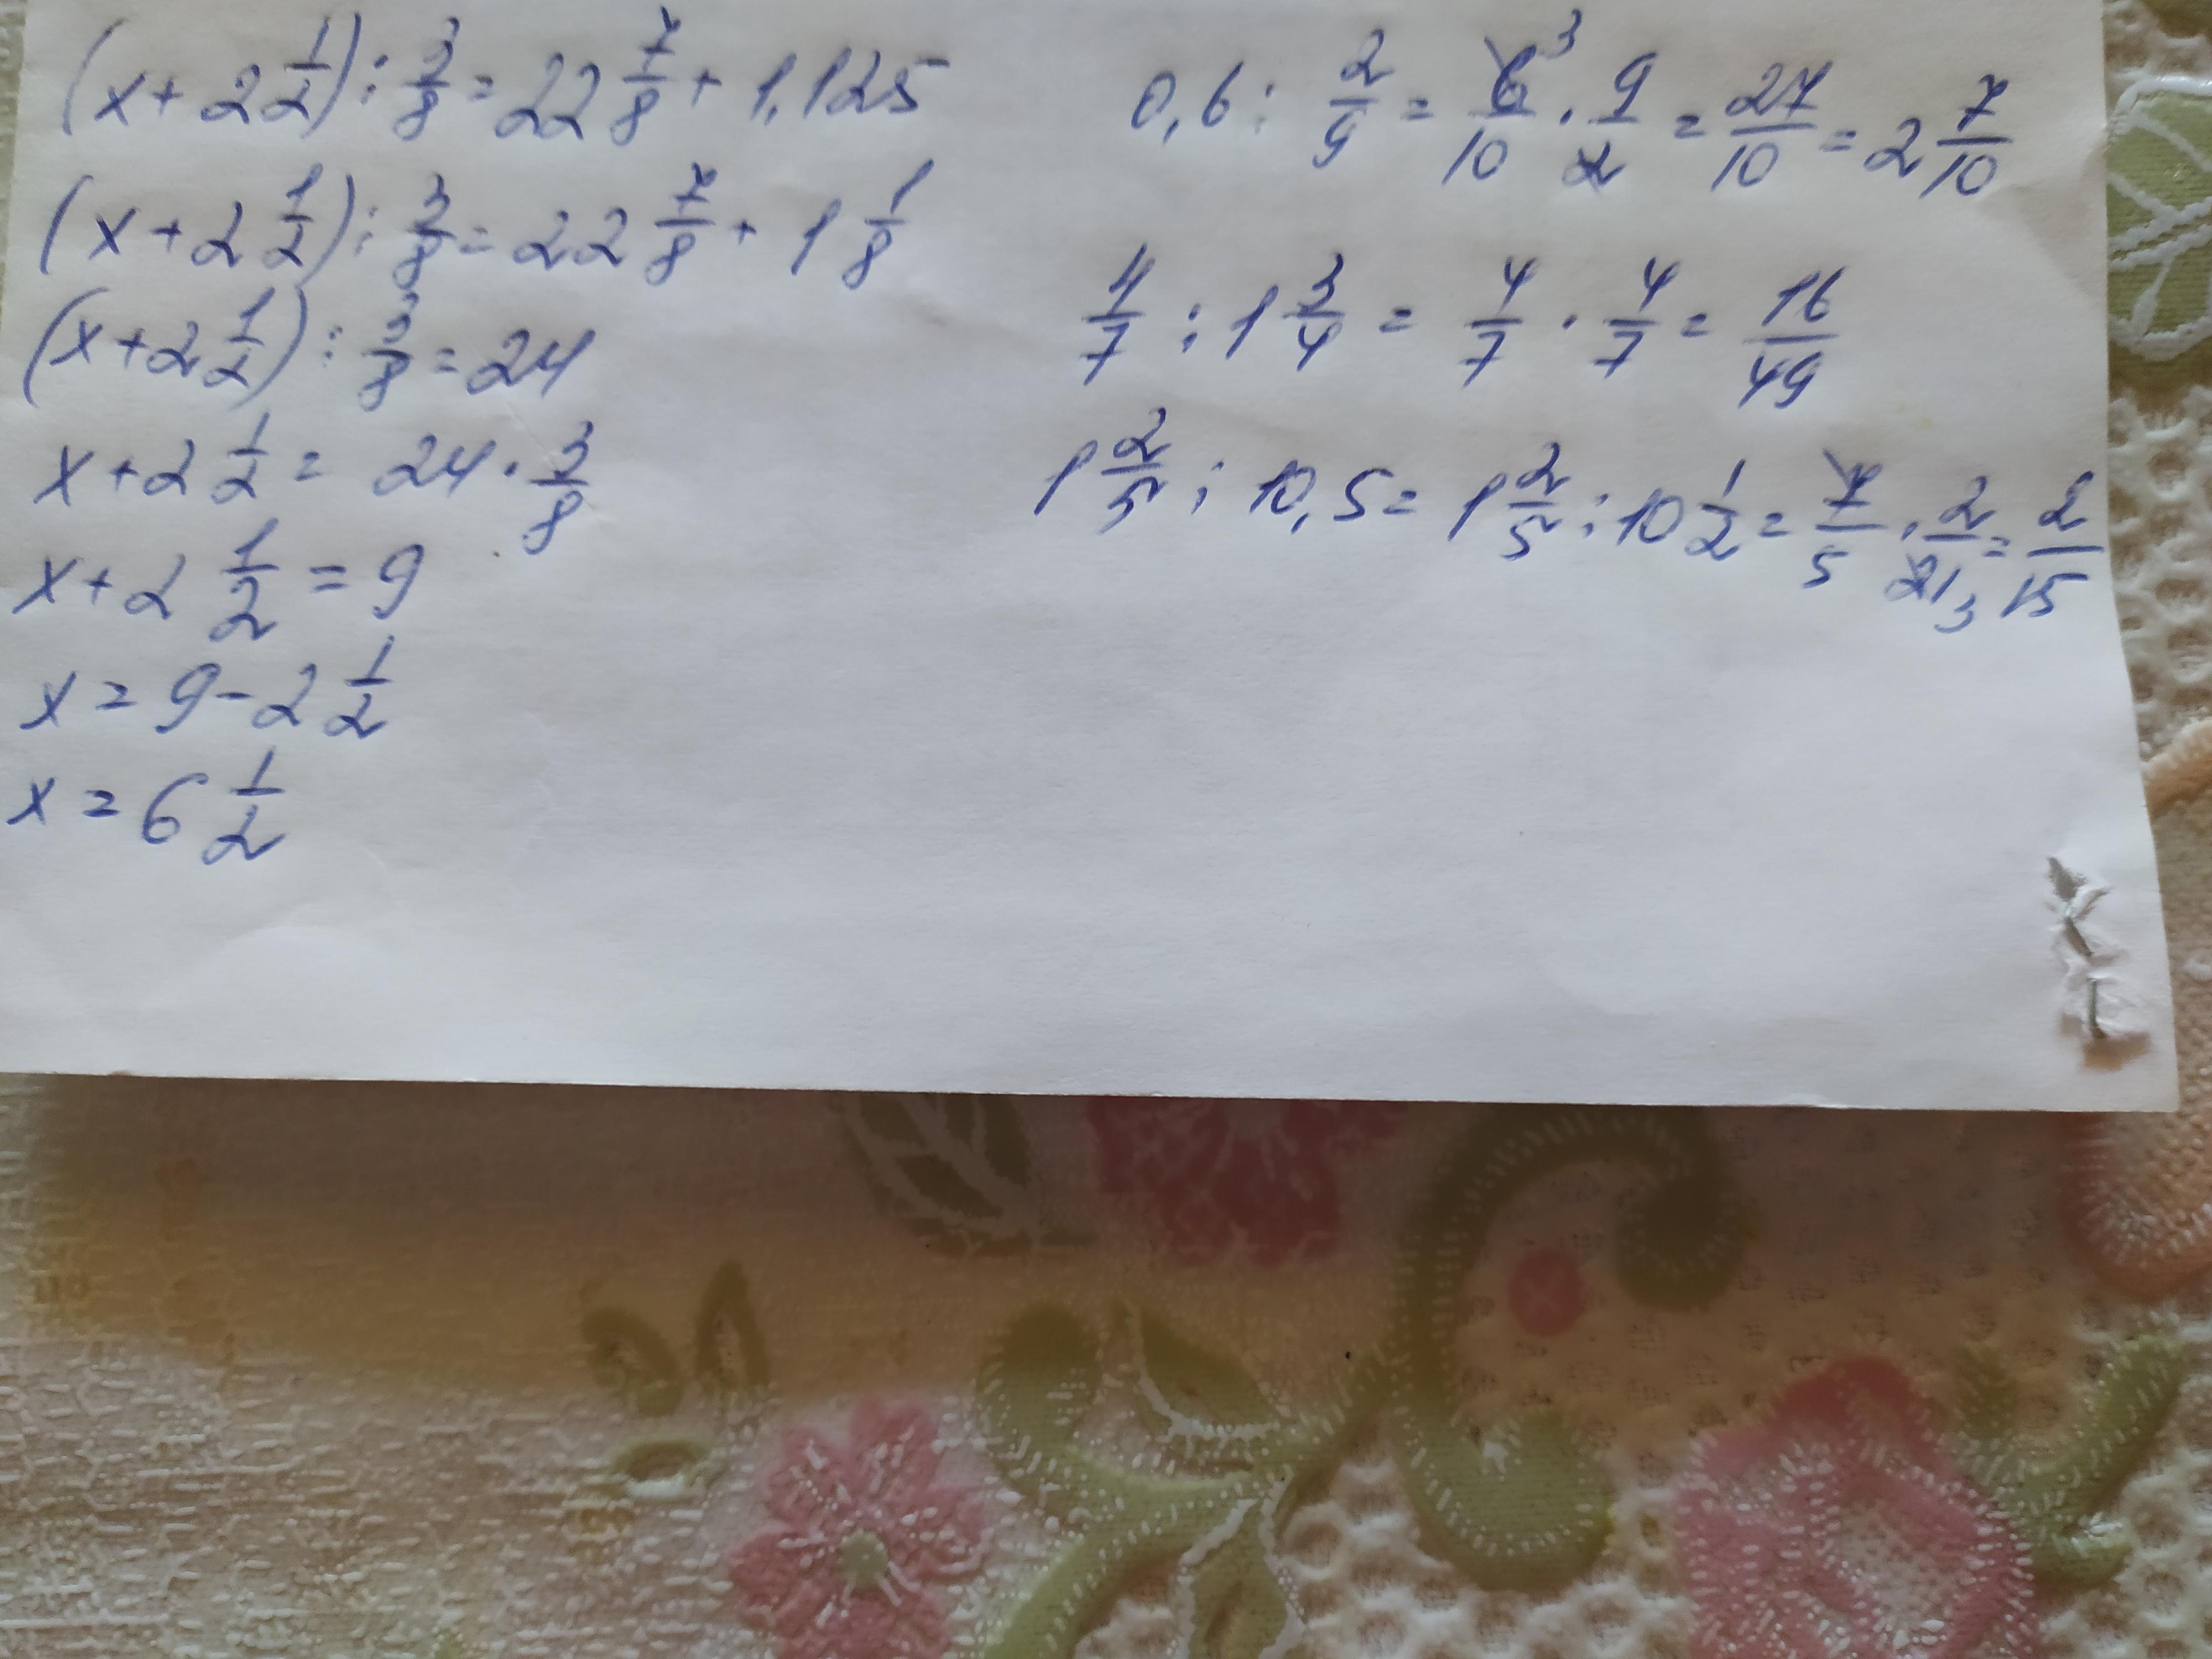 (x + 2 1/2) : 3/8 = 22 7/8 + 1,125
(x + 2 1/2) : 3/8 = 22 7/8 + 1 1/8
(x + 2 1/2) : 3/8 = 24
x + 2 1/2 = 24 · 3/8
x + 2 1/2 = 9
x = 9 - 2 1/2
x = 6 1/2
0,6 : 2/9 = 6 3/10 · 9/2 = 27/10 = 2 7/10
4/7 : 1 3/4 = 4/7 · 4/7 = 16/49
1 2/5 : 10,5 = 1 2/5 : 10 1/2 = 7/5 · 2/21 3 = 2/15